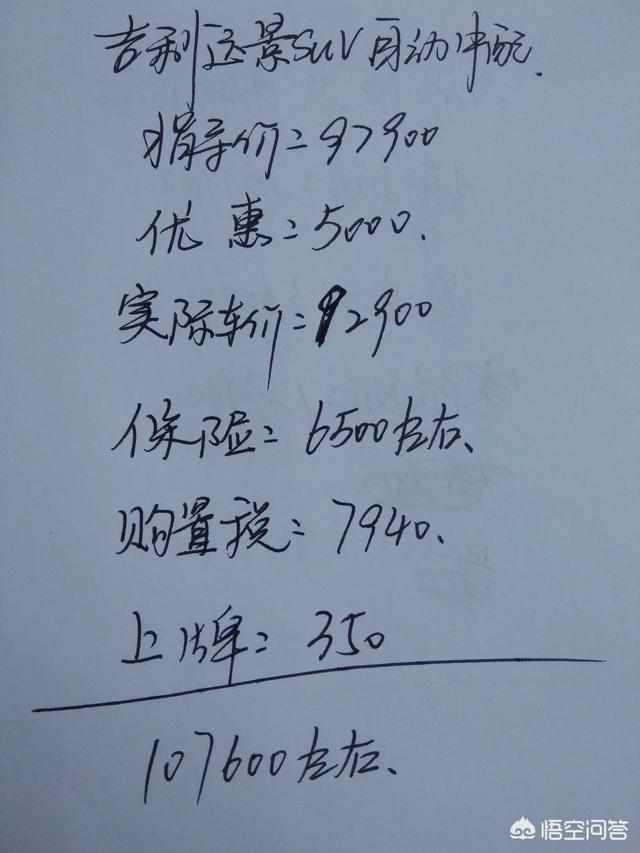 吉利远景SUV自动中配.
指导价=97900
优惠=5000.
实际车价=92900
保险=6500左右、
购置税=7940、
上牌=350
107600左右、
悟空问答